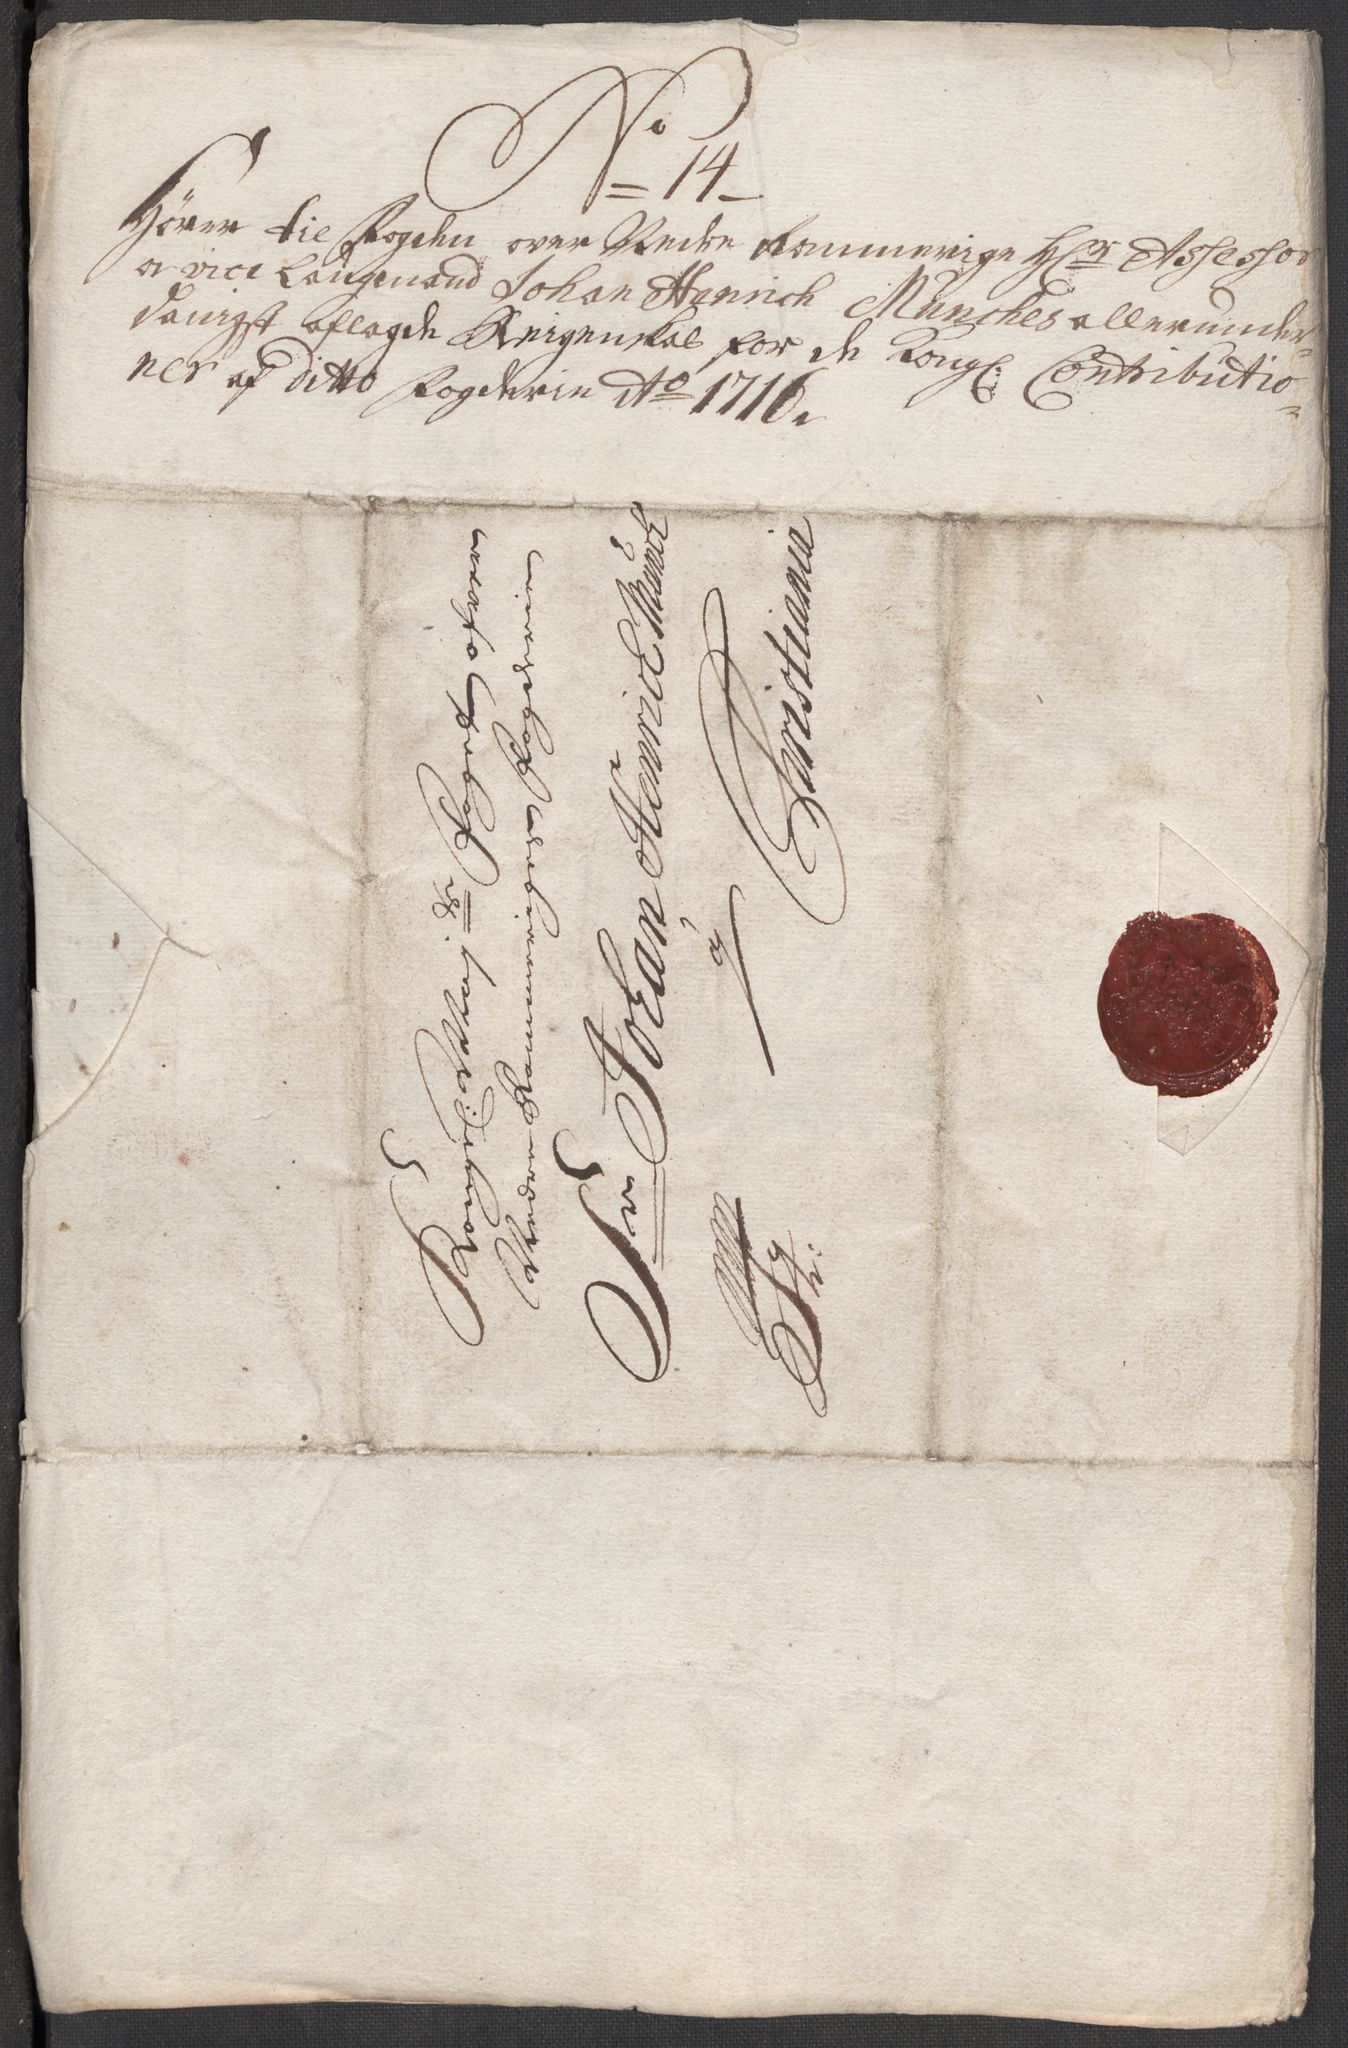 No
14
Hörer til Fogden over Nedre Rommerige Hr Assessor
o vice Laugmand Johan Henrich Munches allerunder-
danigst aflagde Reigenskab for de Kongl: Contributio-
ner af ditto Fogderie Ao 1716.
Kongel: Maj: Foget ofver
Nedre Rommeriges Fogderie
Sr Johan Henrich Munch
a Christiania